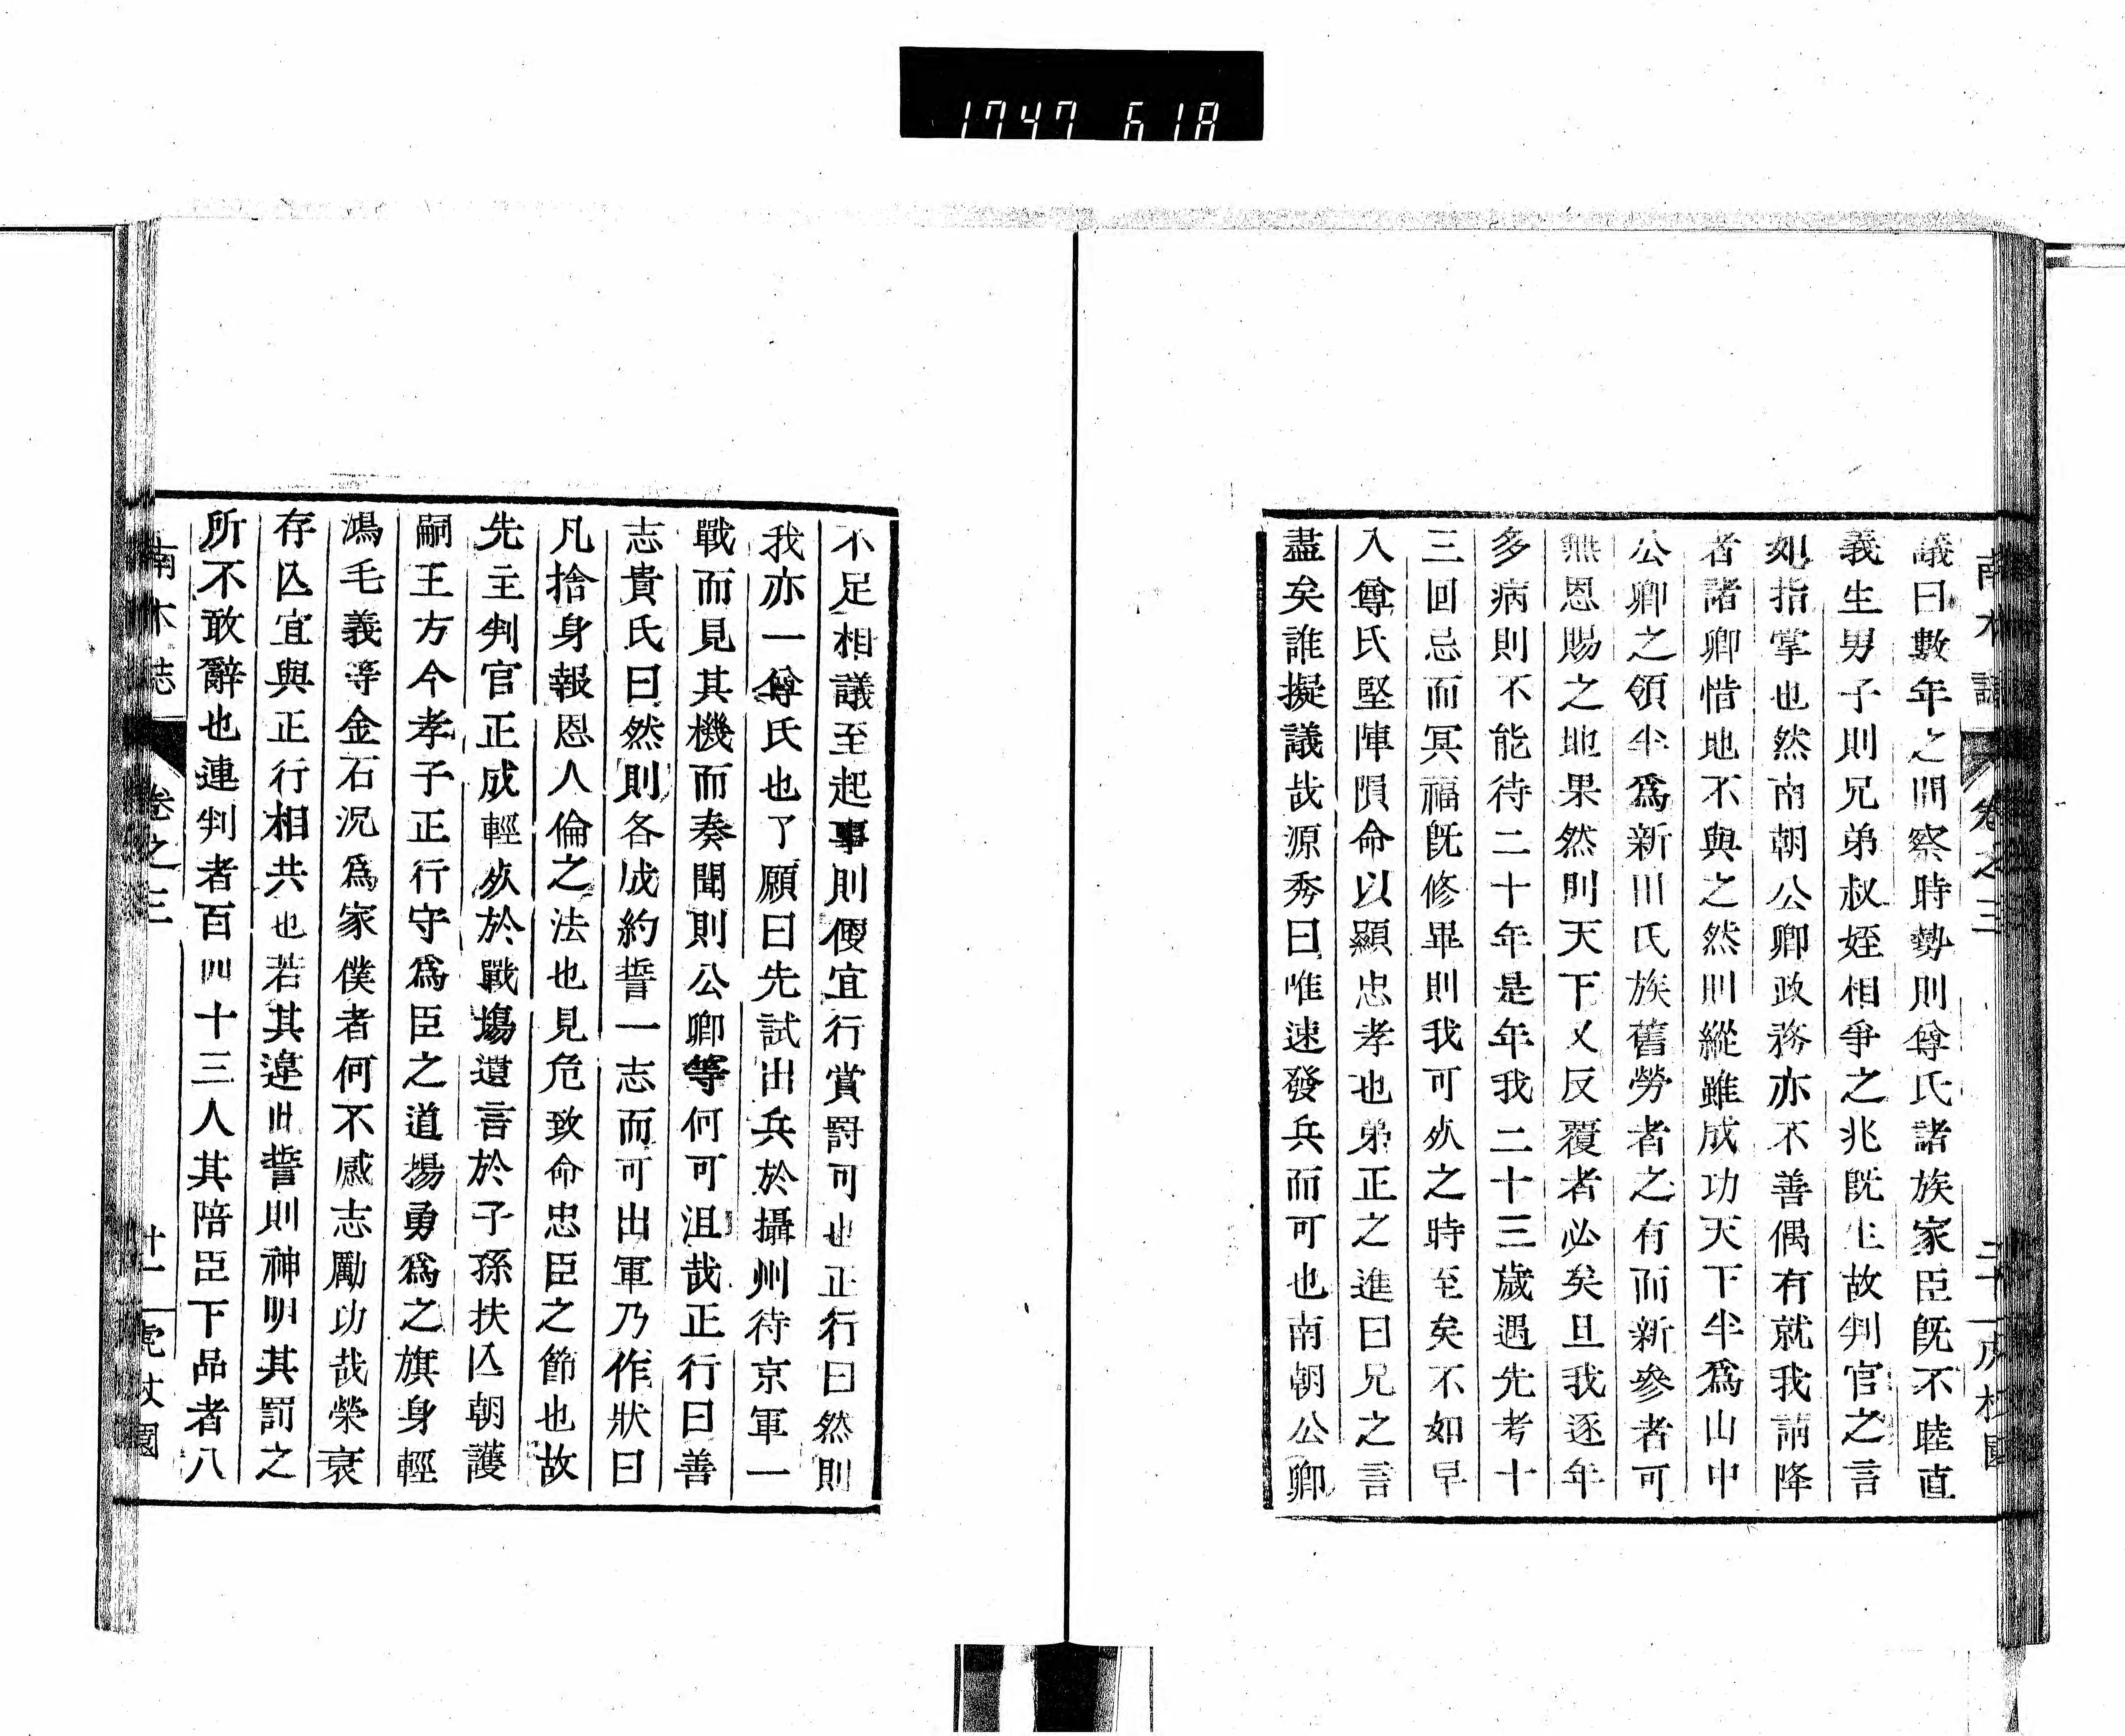 1747 618
南木誌 卷之三 二十 虎杖園
議曰數年之間察時勢則尊氏諸族家臣既不睦直
義生男子則兄弟叔姪相爭之兆既生故判官之言
如指掌也然南朝公卿政務亦不善偶有就我請降
者諸卿惜地不與之然則縱雖成功天下半爲山中
公卿之領半爲新田氏族舊勞者之有而新參者可
無恩賜之地果然則天下又反覆者必矣且我逐年
多病則不能待二十年是年我二十三歲遇先考十
三回忌而冥福既修畢則我可死之時至矣不如早
入尊氏堅陣隕命以顯忠孝也弟正之進曰兄之言
盡矣誰擬議哉源秀曰唯速發兵而可也南朝公卿
不足相議至起事則便宜行賞罸可也正行曰然則
我亦一尊氏也了願曰先試出兵於攝州待京軍一
戰而見其機而奏聞則公卿等何可沮哉正行曰善
志貴氏曰然則各成約誓一志而可出軍乃作狀曰
凡捨身報恩人倫之法也見危致命忠臣之節也故
先主判官正成輕死於戰塲遺言於子孫扶亾朝護
嗣王方今孝子正行守爲臣之道揚勇爲之旗身輕
鴻毛義等金石況爲家僕者何不感志勵功哉榮衰
存亾宜與正行相共也若其違此誓則神明其罰之
所不敢辭也連判者百四十三人其陪臣下品者八
南木誌 卷之三 廿一 虎杖園